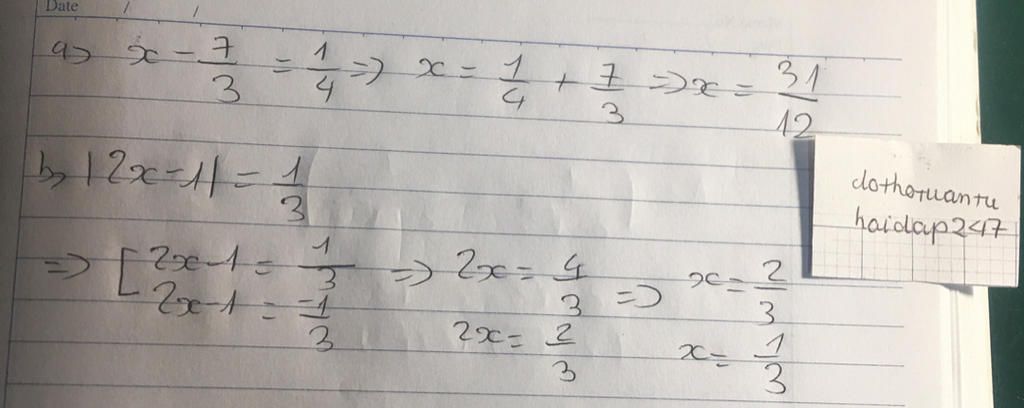 Date / /
a> x - 7/3 = 1/4 => x = 1/4 + 7/3 => x = 31/12
b> |2x-1| = 1/3
=> [ 2x-1 = 1/3 => 2x = 4/3 => x = 2/3
2x-1 = -1/3 2x = 2/3 x = 1/3
dothotuantu
hoidap247